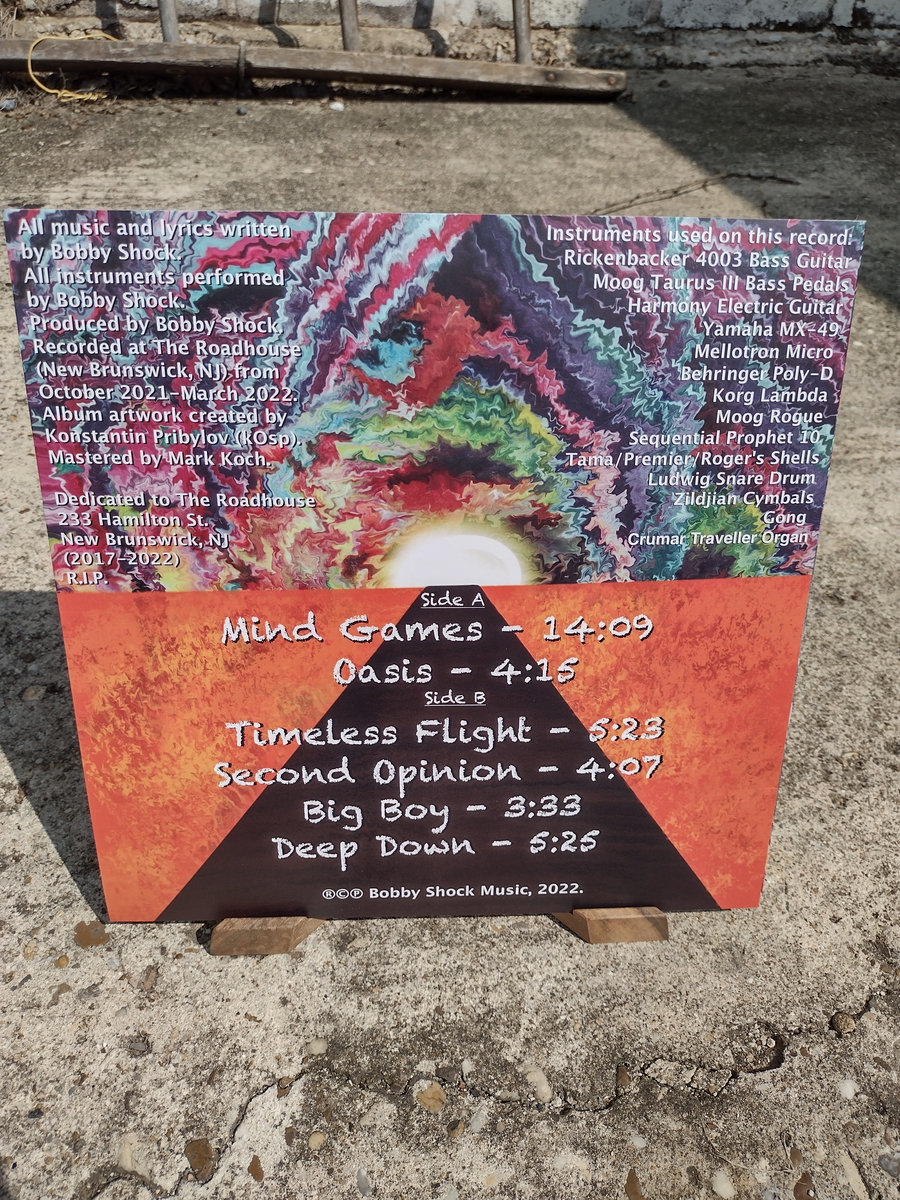 All music and lyrics written
by Bobby Shock.
All instruments performed
by Bobby Shock.
Produced by Bobby Shock.
Recorded at The Roadhouse
(New Brunswick, NJ) from
October 2021-March 2022.
Album artwork created by
Konstantin Pribylov (kOsp).
Mastered by Mark Koch.
Dedicated to The Roadhouse
233 Hamilton St.
New Brunswick, NJ
(2017-2022)
R.I.P.
Instruments used on this record:
Rickenbacker 4003 Bass Guitar
Moog Taurus III Bass Pedals
Harmony Electric Guitar
Yamaha MX-49
Mellotron Micro
Behringer Poly-D
Korg Lambda
Moog Rogue
Sequential Prophet 10
Tama/Premier/Roger's Shells
Ludwig Snare Drum
Zildjian Cymbals
Gong
Crumar Traveller Organ
Side A
Mind Games - 14:09
Oasis - 4:15
Side B
Timeless Flight - 5:23
Second Opinion - 4:07
Big Boy - 3:33
Deep Down - 5:25
®©℗ Bobby Shock Music, 2022.